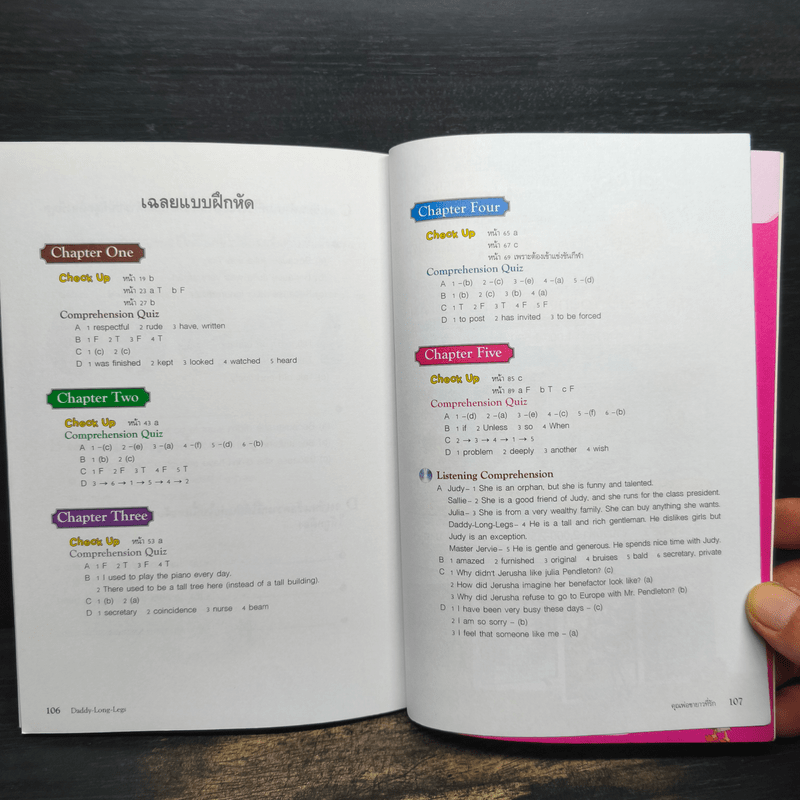 เฉลยแบบฝึกหัด
Chapter One
Check Up หน้า 19 b
หน้า 23 a T b F
หน้า 27 b
Comprehension Quiz
A 1 respectful 2 rude 3 have, written
B 1 F 2 T 3 F 4 T
C 1 (c) 2 (c)
D 1 was finished 2 kept 3 looked 4 watched 5 heard
Chapter Two
Check Up หน้า 43 a
Comprehension Quiz
A 1 -(c) 2 -(e) 3 -(a) 4 -(f) 5 -(d) 6 -(b)
B 1 (b) 2 (c)
C 1 F 2 F 3 T 4 F 5 T
D 3 → 6 → 1 → 5 → 4 → 2
Chapter Three
Check Up หน้า 53 a
Comprehension Quiz
A 1 F 2 T 3 F 4 T
B 1 I used to play the piano every day.
2 There used to be a tall tree here (instead of a tall building).
C 1 (b) 2 (a)
D 1 secretary 2 coincidence 3 nurse 4 beam
106 Daddy-Long-Legs
Chapter Four
Check Up หน้า 65 a
หน้า 67 c
หน้า 69 เพราะต้องเข้าแข่งขันกีฬา
Comprehension Quiz
A 1 -(b) 2 -(c) 3 -(e) 4 -(a) 5 -(d)
B 1 (b) 2 (c) 3 (b) 4 (a)
C 1 T 2 F 3 T 4 F 5 F
D 1 to post 2 has invited 3 to be forced
Chapter Five
Check Up หน้า 85 c
หน้า 89 a F b T c F
Comprehension Quiz
A 1 -(d) 2 -(a) 3 -(e) 4 -(c) 5 -(f) 6 -(b)
B 1 if 2 Unless 3 so 4 When
C 2 → 3 → 4 → 1 → 5
D 1 problem 2 deeply 3 another 4 wish
Listening Comprehension
A Judy- 1 She is an orphan, but she is funny and talented.
Sallie- 2 She is a good friend of Judy, and she runs for the class president.
Julia- 3 She is from a very wealthy family. She can buy anything she wants.
Daddy-Long-Legs- 4 He is a tall and rich gentleman. He dislikes girls but
Judy is an exception.
Master Jervie- 5 He is gentle and generous. He spends nice time with Judy.
B 1 amazed 2 furnished 3 original 4 bruises 5 bald 6 secretary, private
C 1 Why didn't Jerusha like julia Pendleton? (c)
2 How did Jerusha imagine her benefactor look like? (a)
3 Why did Jerusha refuse to go to Europe with Mr. Pendleton? (b)
D 1 I have been very busy these days - (c)
2 I am so sorry - (b)
3 I feel that someone like me - (a)
คุณพ่อขายาวที่รัก 107